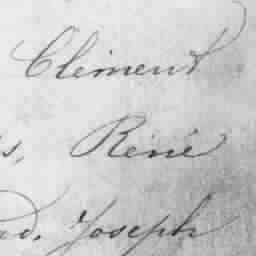 Clément
s, René
ed. Joseph